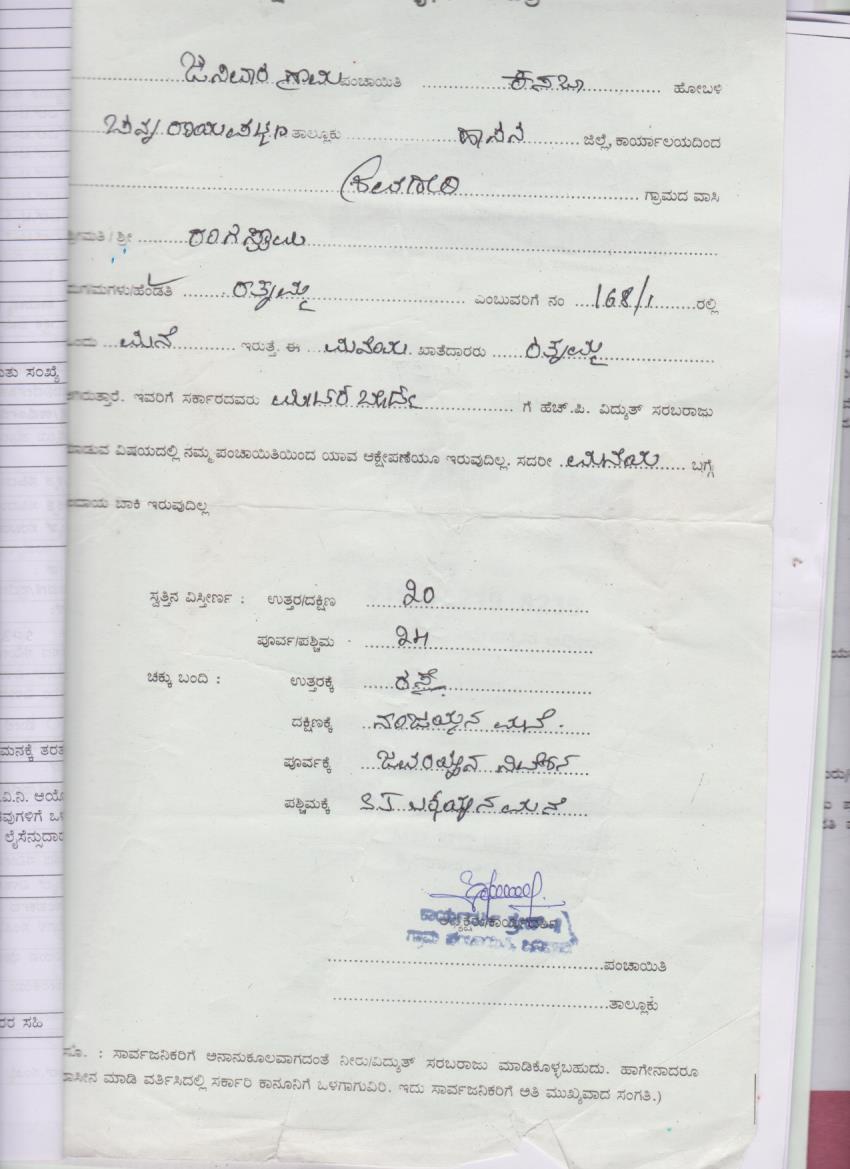 ಜನಿವಾರ ಗ್ರಾಮ ಪಂಚಾಯಿತಿ ಕಸಬಾ ಹೋಬಳಿ
ಚನ್ನರಾಯಪಟ್ಟಣ ತಾಲ್ಲೂಕು ಹಾಸನ ಜಿಲ್ಲೆ, ಕಾರ್ಯಾಲಯದಿಂದ
ಗ್ರಾಮದ ವಾಸಿ
ಶ್ರೀಮತಿ / ಶ್ರೀ ರಂಗಸ್ವಾಮಿ
ಮಗ/ಮಗಳು/ಹೆಂಡತಿ ರತ್ನಮ್ಮ ಎಂಬುವರಿಗೆ ನಂ 168/1 ರಲ್ಲಿ
ಮನೆ ಇರುತ್ತೆ. ಈ ಮನೆಯ ಖಾತೆದಾರರು ರತ್ನಮ್ಮ
ಆಗಿರುತ್ತಾರೆ. ಇವರಿಗೆ ಸರ್ಕಾರದವರು ಗೆ ಹೆಚ್.ಪಿ. ವಿದ್ಯುತ್ ಸರಬರಾಜು
ಮಾಡುವ ವಿಷಯದಲ್ಲಿ ನಮ್ಮ ಪಂಚಾಯಿತಿಯಿಂದ ಯಾವ ಆಕ್ಷೇಪಣೆಯೂ ಇರುವುದಿಲ್ಲ. ಸದರೀ ಮನೆಯ ಬಗ್ಗೆ
ಕಂದಾಯ ಬಾಕಿ ಇರುವುದಿಲ್ಲ
ಸ್ವತ್ತಿನ ವಿಸ್ತೀರ್ಣ : ಉತ್ತರ/ದಕ್ಷಿಣ ೨೦
ಪೂರ್ವ/ಪಶ್ಚಿಮ ೨೪
ಚಕ್ಕು ಬಂದಿ : ಉತ್ತರಕ್ಕೆ ರಸ್ತೆ
ದಕ್ಷಿಣಕ್ಕೆ ನಂಜಯ್ಯನ ಮನೆ.
ಪೂರ್ವಕ್ಕೆ ಜವರಯ್ಯನ ನಿವೇಶನ
ಪಶ್ಚಿಮಕ್ಕೆ ಮನೆ
ಅಧ್ಯಕ್ಷರು/ಕಾರ್ಯದರ್ಶಿ
ಪಂಚಾಯಿತಿ
ತಾಲ್ಲೂಕು
ಸೂ. : ಸಾರ್ವಜನಿಕರಿಗೆ ಅನಾನುಕೂಲವಾಗದಂತೆ ನೀರು/ವಿದ್ಯುತ್ ಸರಬರಾಜು ಮಾಡಿಕೊಳ್ಳಬಹುದು. ಹಾಗೇನಾದರೂ
ಮಾಡಿ ವರ್ತಿಸಿದಲ್ಲಿ ಸರ್ಕಾರಿ ಕಾನೂನಿಗೆ ಒಳಗಾಗುವಿರಿ. ಇದು ಸಾರ್ವಜನಿಕರಿಗೆ ಅತಿ ಮುಖ್ಯವಾದ ಸಂಗತಿ.)